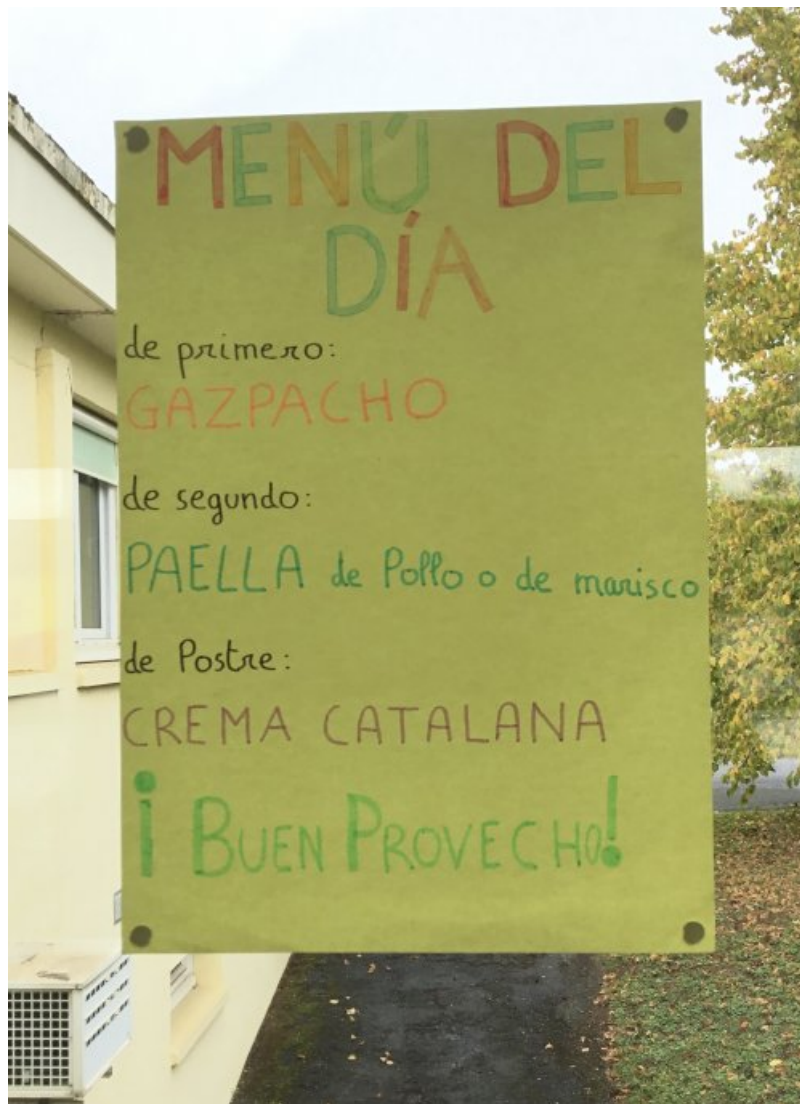 MENÚ DEL
DÍA
de primero:
GAZPACHO
de segundo:
PAELLA de Pollo o de marisco
de Postre:
CREMA CATALANA
¡BUEN PROVECHO!